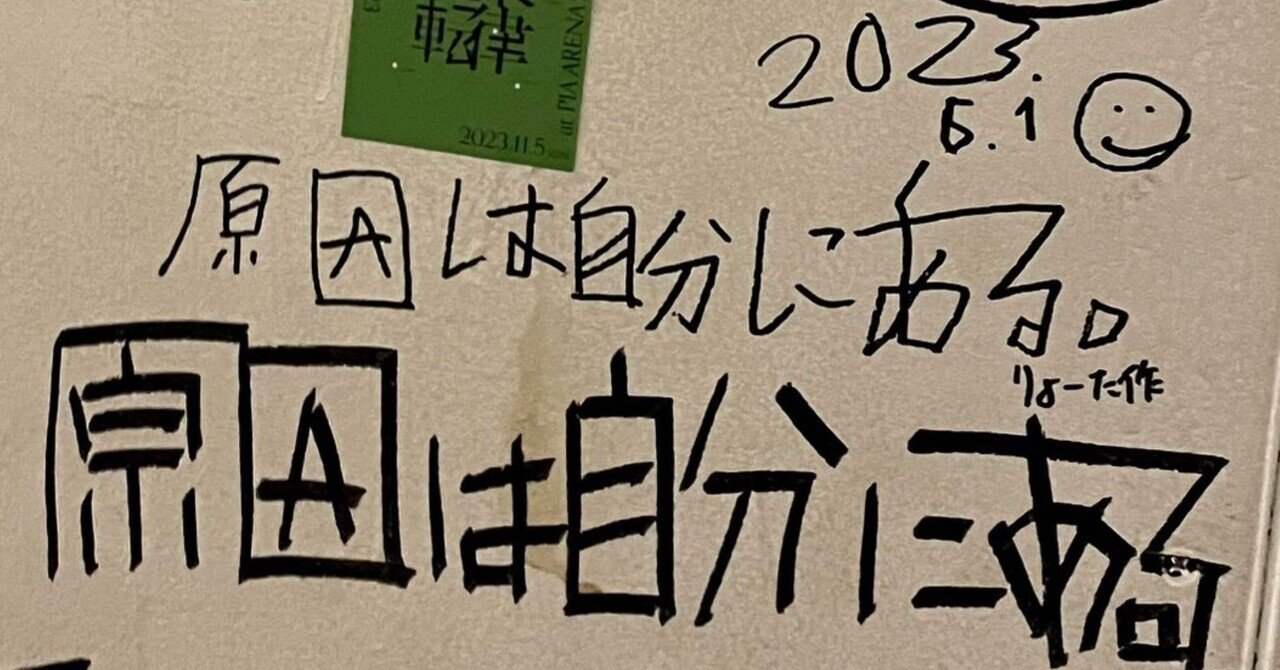 転律
at PIA ARENA
2023.11.5
2023.
6.1
原因は自分にある。
りょーた作
原因は自分にある